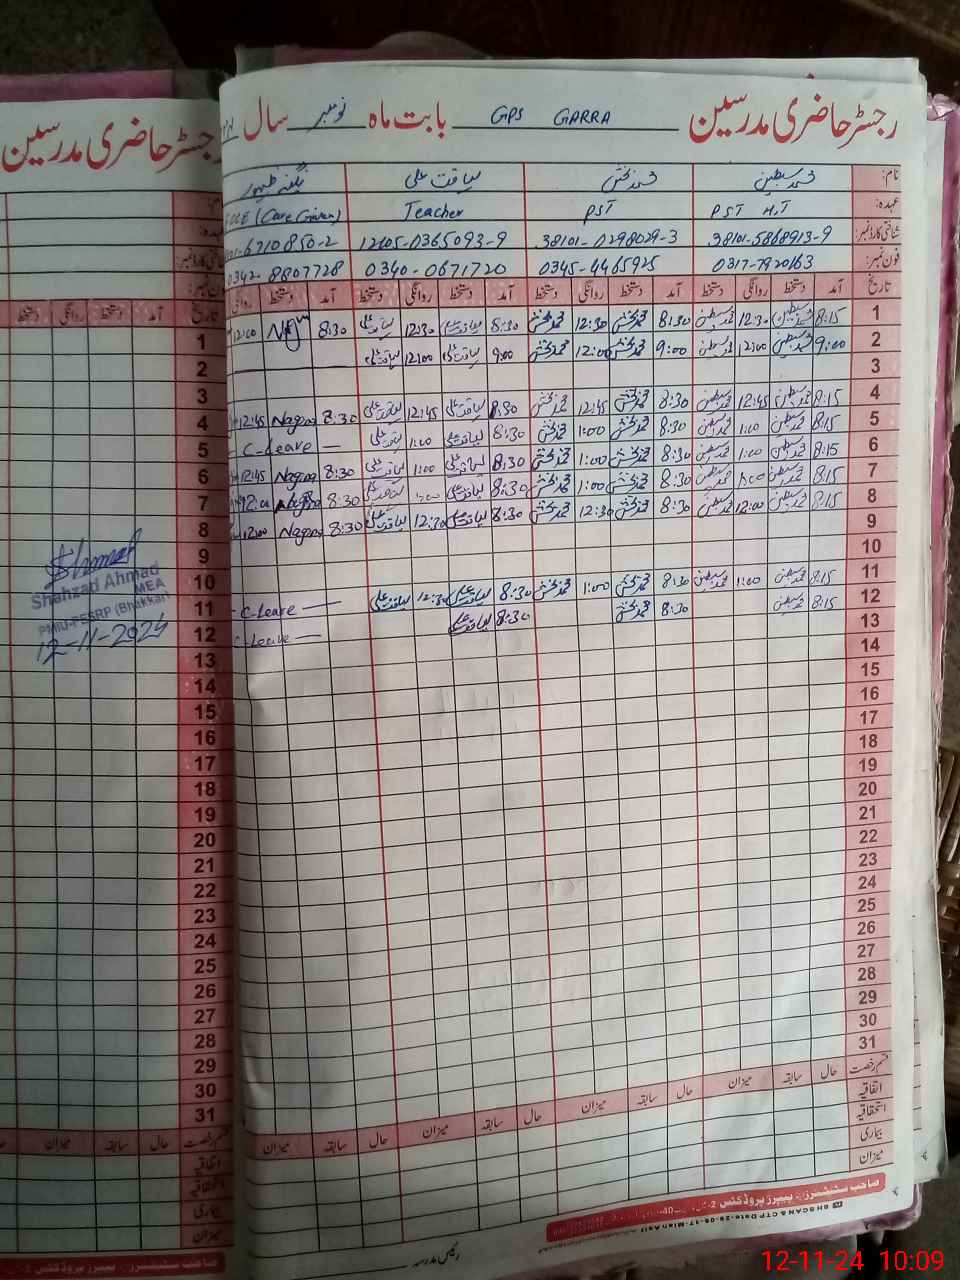 رجسٹر حاضری مدرسین GPS GARRA بابت ماہ نومبر سال
رجسٹر حاضری مدرسین
نام: محمد سبطین محمد بخش لیاقت علی نگینہ ظہور
عہدہ: PST H.T PST Teacher ECCE (Care Giver)
شناختی کارڈ نمبر: 38101-5868913-9 38101-0298029-3 12105-0365093-9 01-6710850-2
فون نمبر: 0317-7920163 0345-4465925 0340-0671720 0342-8807728
تاریخ آمد دستخط روانگی دستخط آمد دستخط روانگی دستخط آمد دستخط روانگی دستخط آمد دستخط روانگی
1 8:15 محمد سبطین 12:30 محمد سبطین 8:30 محمد بخش 12:30 محمد بخش 8:30 لیاقت علی 12:30 لیاقت علی 8:30 12:00
2 9:00 محمد سبطین 12:00 محمد سبطین 9:00 محمد بخش 12:00 محمد بخش 9:00 لیاقت علی 12:00 لیاقت علی
3
4 8:15 محمد سبطین 12:45 محمد سبطین 8:30 محمد بخش 12:45 محمد بخش 8:30 لیاقت علی 12:45 لیاقت علی 8:30 Nagina 12:45
5 8:15 محمد سبطین 1:00 محمد سبطین 8:30 محمد بخش 1:00 محمد بخش 8:30 لیاقت علی 1:00 لیاقت علی — C-Leave —
6 8:15 محمد سبطین 1:00 محمد سبطین 8:30 محمد بخش 1:00 محمد بخش 8:30 لیاقت علی 1:00 لیاقت علی 8:30 Nagina 12:45
7 8:15 محمد سبطین 1:00 محمد سبطین 8:30 محمد بخش 1:00 محمد بخش 8:30 لیاقت علی 1:00 لیاقت علی 8:30 Nagina 12:00
8 8:15 محمد سبطین 12:00 محمد سبطین 8:30 محمد بخش 12:30 محمد بخش 8:30 لیاقت علی 12:30 لیاقت علی 8:30 Nagina 12:00
9
10
11 8:15 محمد سبطین 1:00 محمد سبطین 8:30 محمد بخش 1:00 محمد بخش 8:30 لیاقت علی 12:30 لیاقت علی — C-Leave —
12 8:15 محمد سبطین 8:30 محمد بخش 8:30 لیاقت علی C-Leave —
13
14
15
16
17
18
19
20
21
22
23
24
25
26
27
28
29
30
31
قسم رخصت حال سابقہ میزان حال سابقہ میزان حال سابقہ میزان حال سابقہ میزان
اتفاقیہ
استحقاقیہ
بیماری
میزان
رئیس مدرسہ
تاریخ آمد دستخط روانگی دستخط
1
2
3
4
5
6
7
8
9
10
11
12
13
14
15
16
17
18
19
20
21
22
23
24
25
26
27
28
29
30
31
قسم رخصت حال سابقہ میزان
اتفاقیہ
استحقاقیہ
بیماری
میزان
Shahzad Ahmad
MEA
PMIU-PESRP (Bhakkar)
12-11-2024
12-11-24 10:09